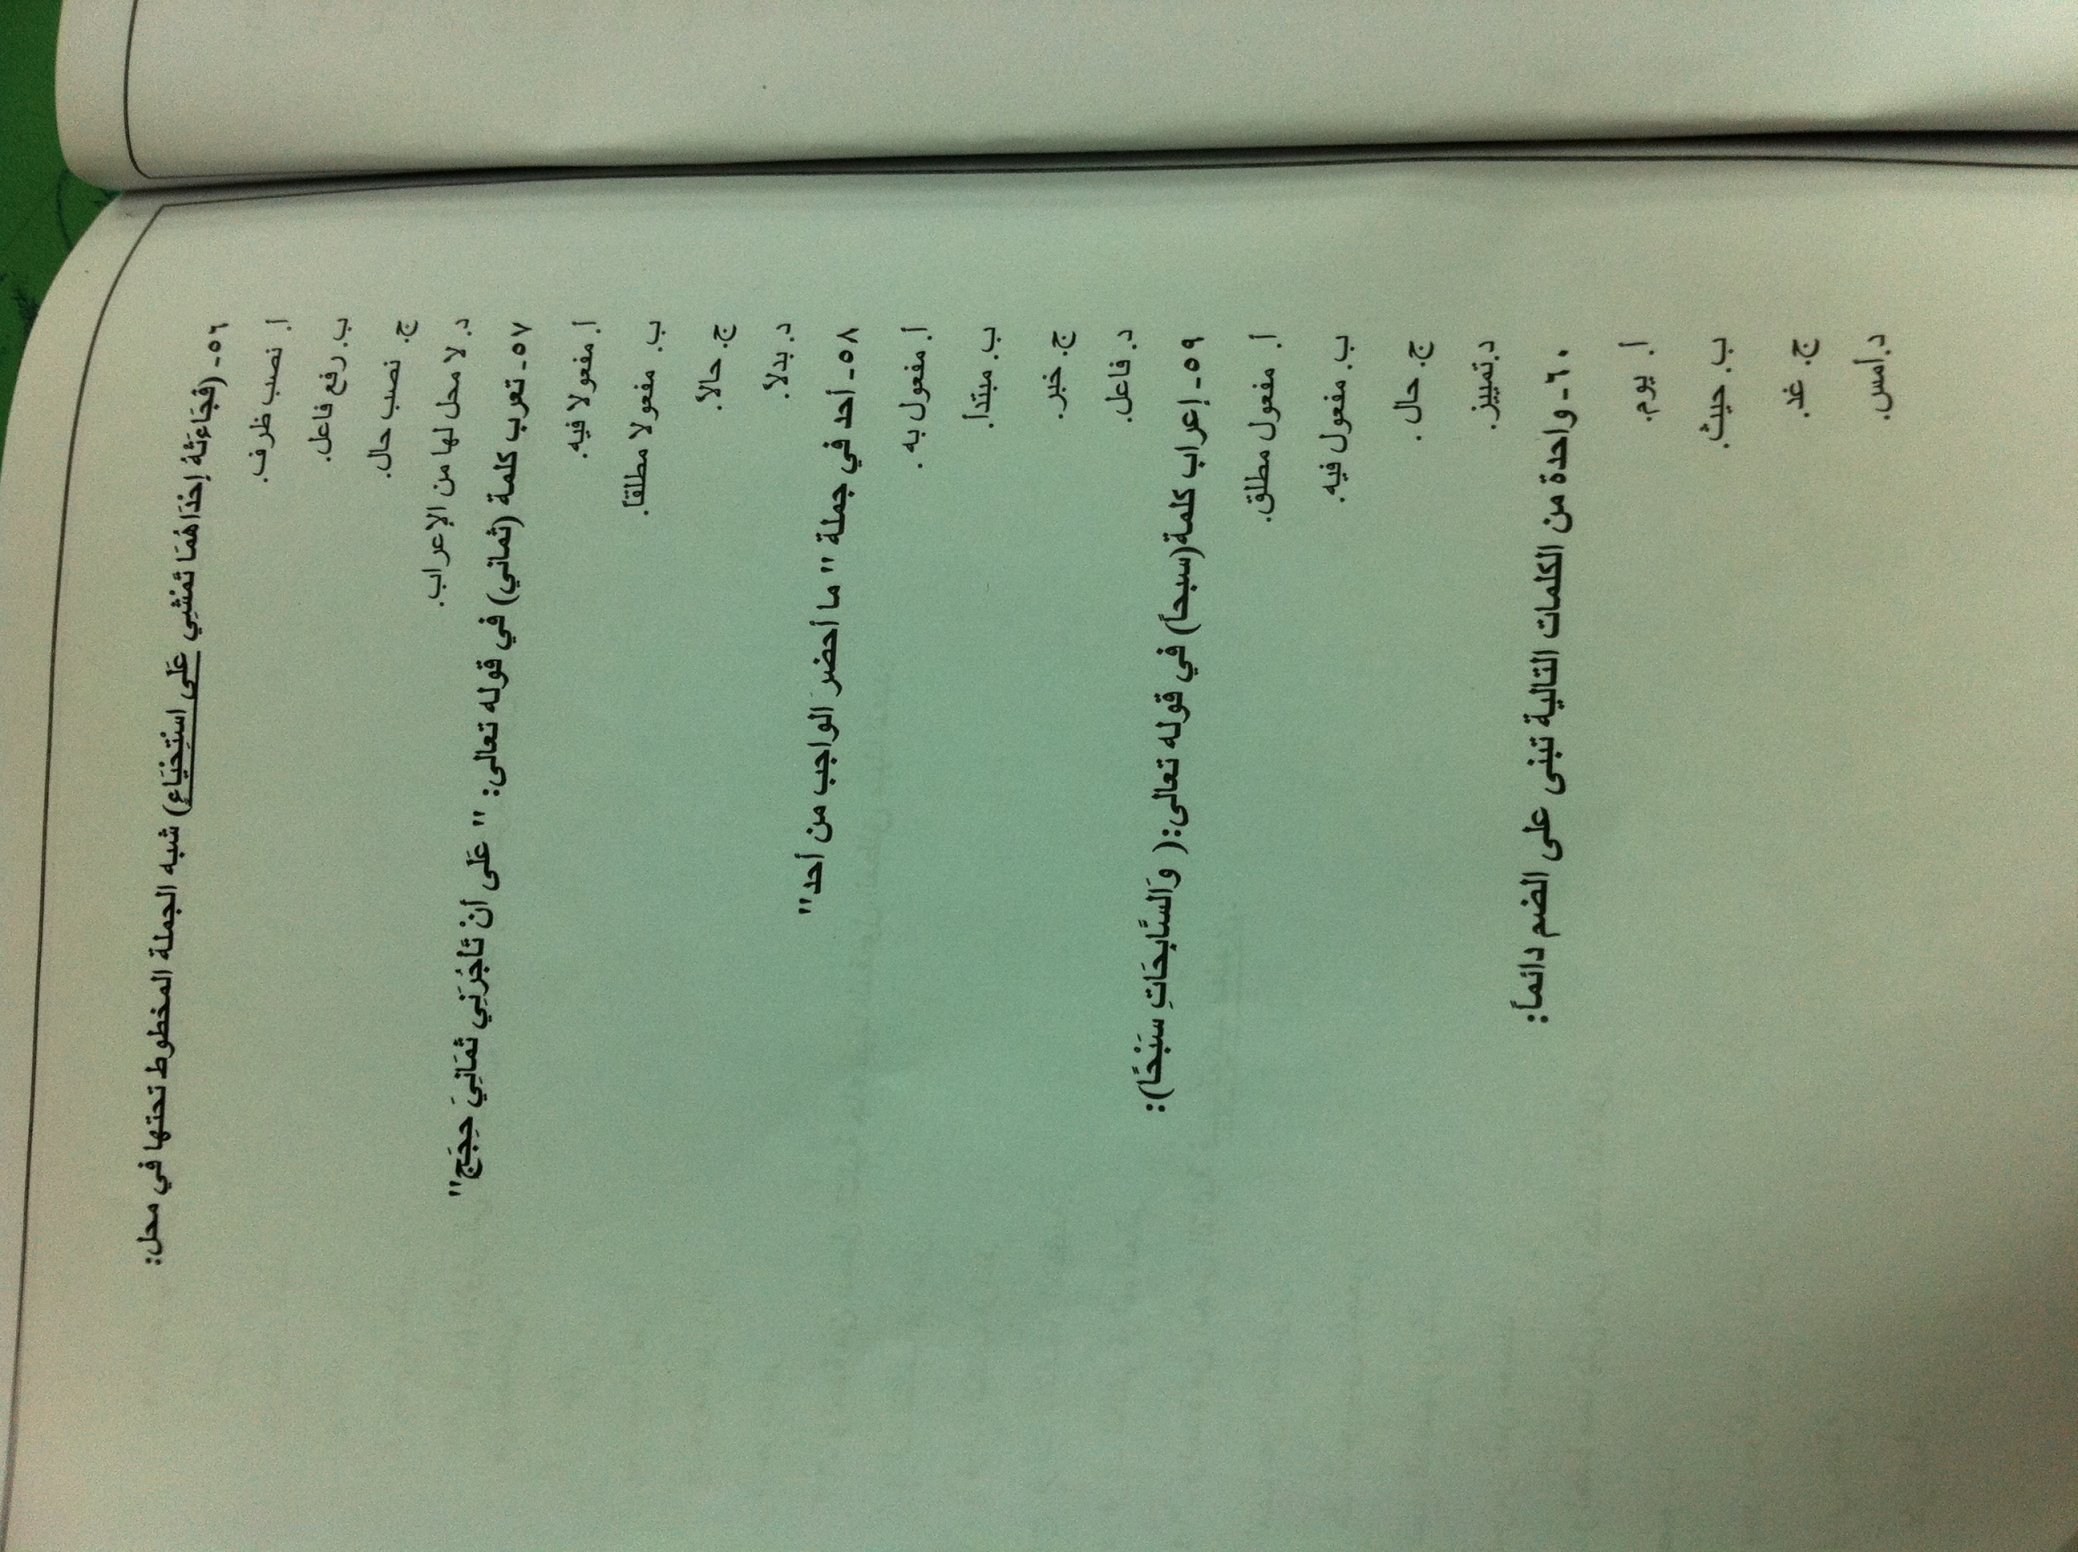 ٥٦- (فَجَاءَتْهُ إِحْدَاهُمَا تَمْشِي عَلَى اسْتِحْيَاءٍ) شبه الجملة المخطوط تحتها في محل:
أ. نصب ظرف.
ب. رفع فاعل.
ج. نصب حال.
د. لا محل لها من الإعراب.
٥٧- تعرب كلمة (ثماني) في قوله تعالى: " عَلَى أَنْ تَأْجُرَنِي ثَمَانِيَ حِجَجٍ"
أ. مفعولا فيه.
ب. مفعولا مطلقاً.
ج. حالاً.
د. بدلاً.
٥٨- أحد في جملة " ما أحضرَ الواجب من أحد"
أ. مفعول به .
ب. مبتدأ.
ج. خبر.
د. فاعل.
٥٩- إعراب كلمة(سبحاً) في قوله تعالى:( وَالسَّابِحَاتِ سَبْحًا):
أ. مفعول مطلق.
ب. مفعول فيه.
ج. حال .
د. تمييز.
٦٠- واحدة من الكلمات التالية تبنى على الضم دائماً:
أ. يوم.
ب. حيث.
ج. غد.
د. أمس.